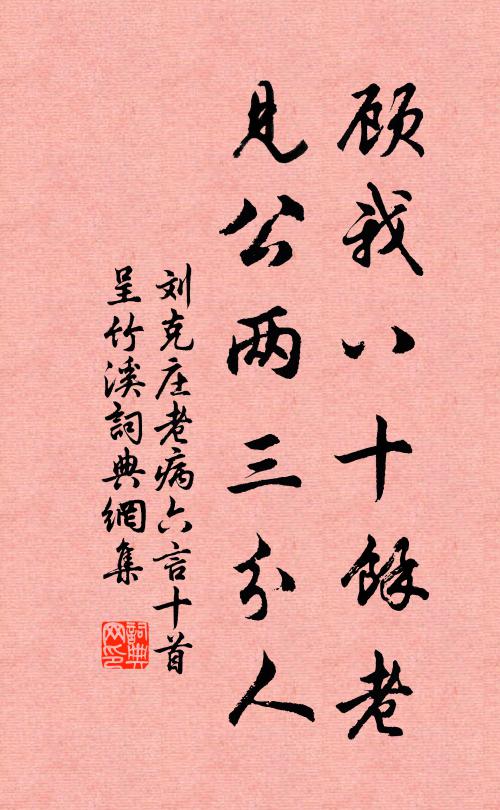 顾我八十馀老
见公两三分人
刘克庄老病六言十首
呈竹溪詞典網集
詞典网印